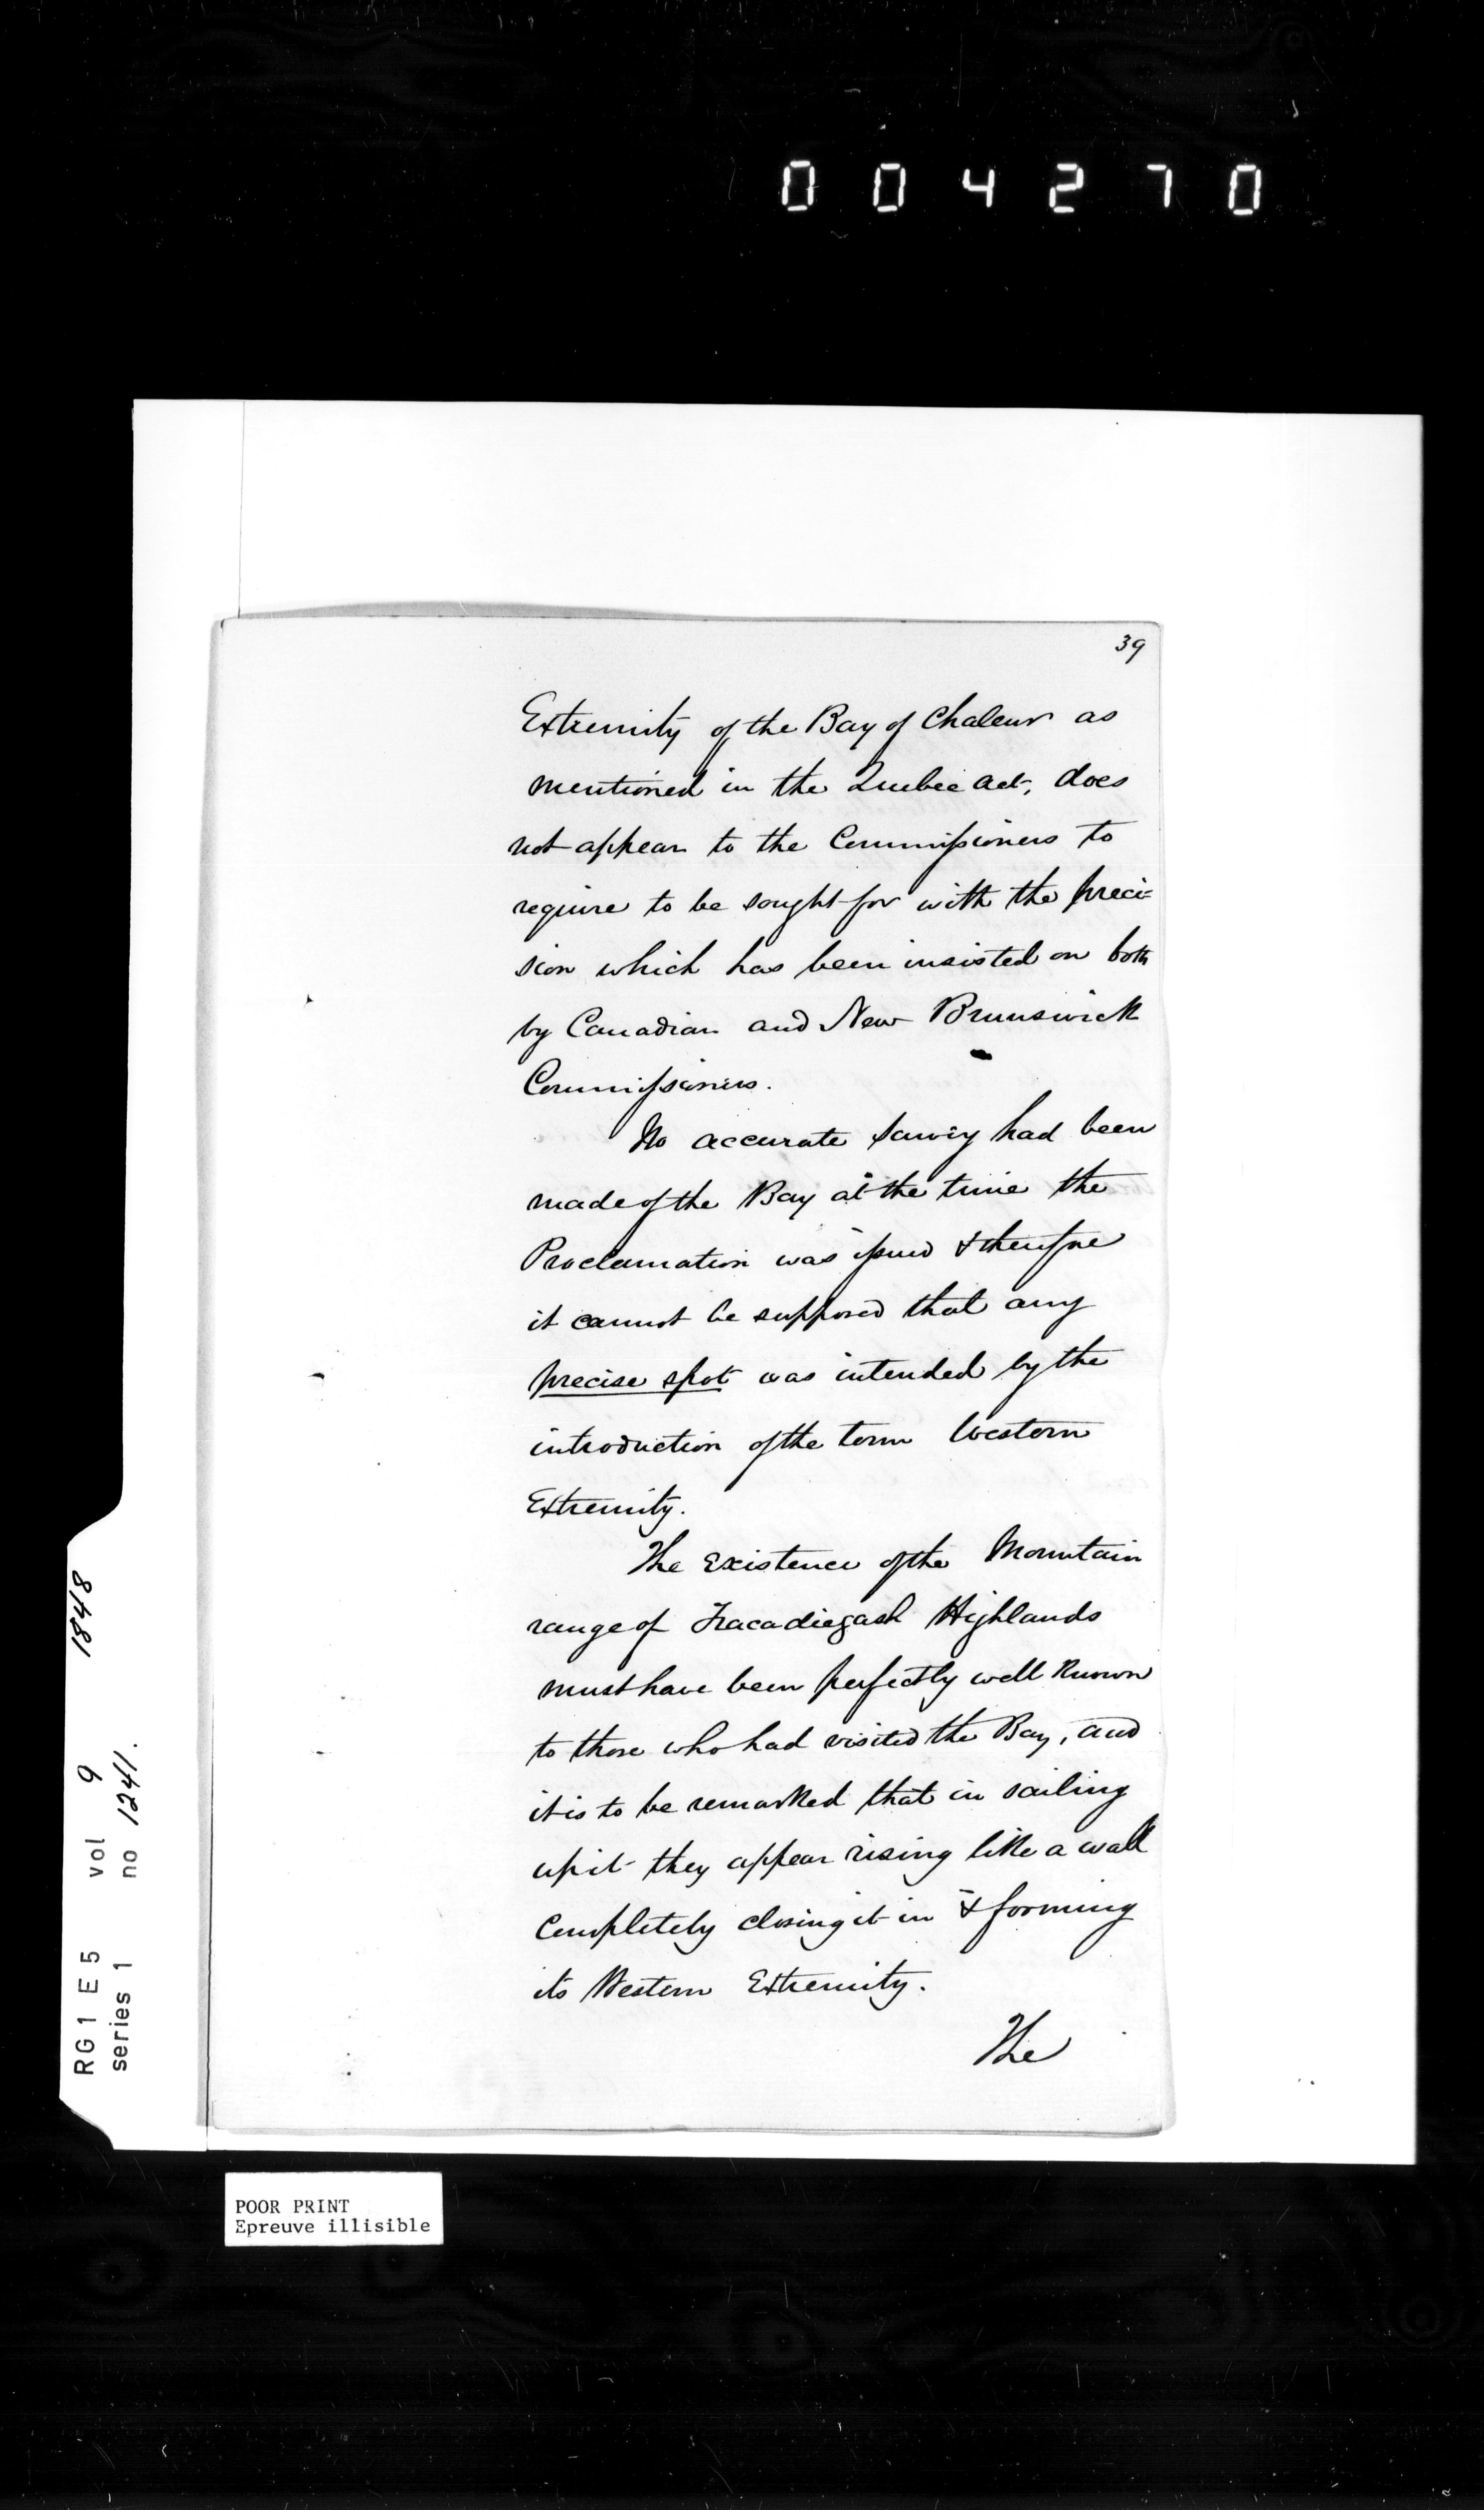 004270
39
Extremity of the Bay of Chaleur as
mentioned in the Quebec Act, does
not appear to the Commissioners to
require to be sought for with the preci=
sion which has been insisted on both
by Canadian and New Brunswick
Commissioners.
No accurate survey had been
made of the Bay at the time the
Proclamation was issued & therefore
it cannot be supposed that any
precise spot was intended by the
introduction of the term Western
Extremity.
The existence of the Mountain
range of Tracadiegash Highlands
must have been perfectly well known
to those who had visited the Bay, and
it is to be remarked that in sailing
up it they appear rising like a wall
completely closing it in & forming
its Western Extremity.
The
RG 1 E 5 vol 9 1848
series 1 no 1241.
POOR PRINT
Epreuve illisible